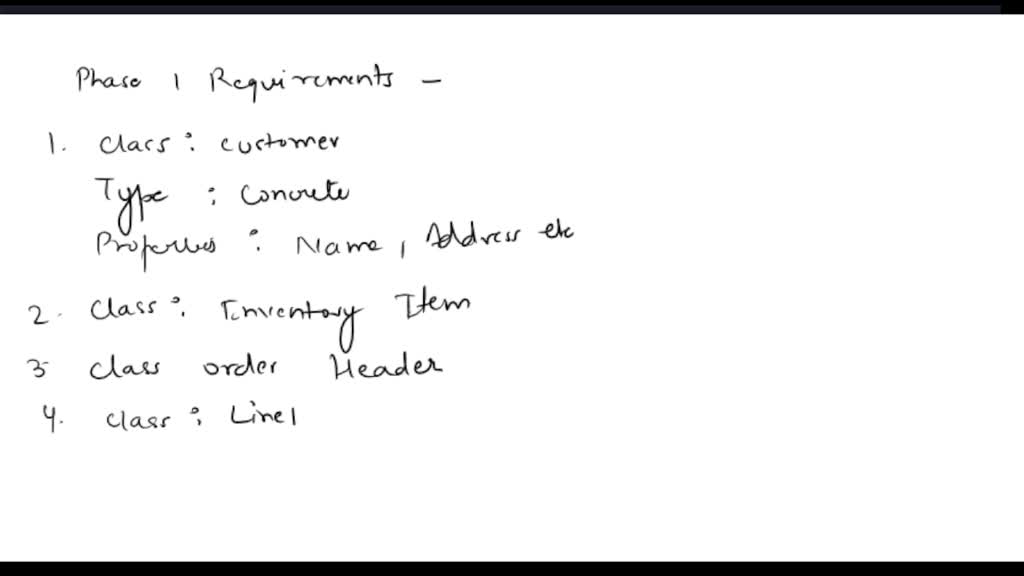 Phase 1 Requirements -
1. Class : customer
Type : Concrete
Properties : Name, Address etc
2. Class : Inventory Item
3 class order Header
4. class : Line1